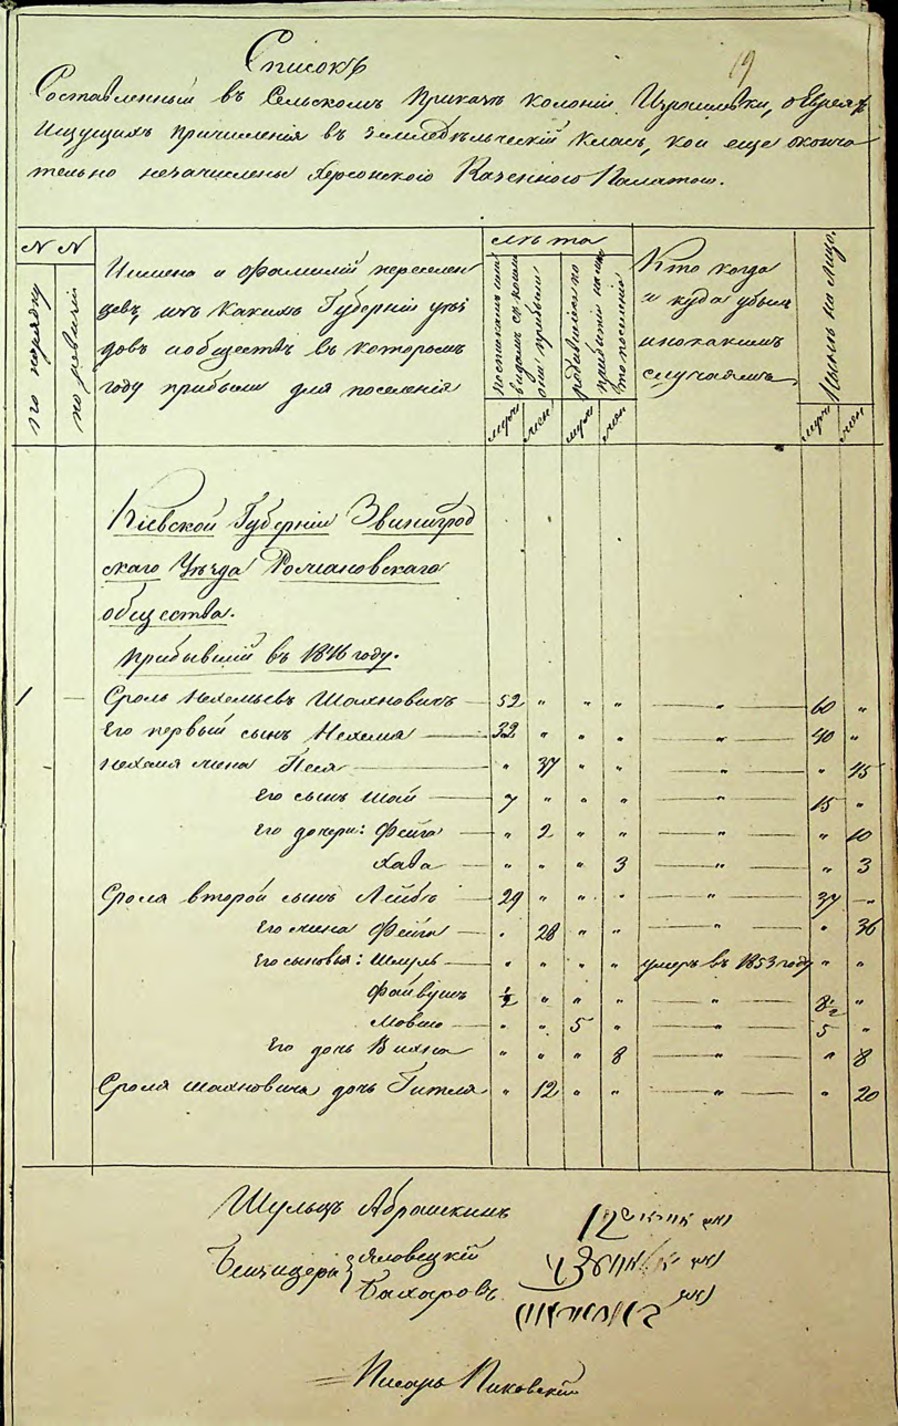 Списокъ
19
Составленный въ Сельскомъ Приказѣ колоніи Израилевки, о Евреяхъ
Ищущихъ причисленія въ земледѣльческій класъ, кои еще оконча
тельно незачислены Херсонскою Казенною Палатою.
№ №
по порядку
по ревизіи
Имена и фамиліи переселен
цевъ, изъ какихъ Губерній уѣз
довъ и обществъ въ которомъ
году прибыли для поселенія
лѣта
родившіеся по
прибытіи на мѣ
сто поселенія
муж
жен
муж
жен
Кто когда
и куда убылъ
и по какимъ
случаямъ
Нынѣ на лицо.
муж
жен
Кіевской Губерніи Звинигрод
скаго Уѣзда Романовскаго
общества.
Прибывшій въ 1846 году.
1 — Сроль Нехемьевъ Шахновичъ — 52 " " " — " — 60 "
Его первый сынъ Нехемія — 32 " " " — " — 40 "
Нехемія жена Песя — " 37 " " — " — " 45
Его сынъ Шая — 7 " " " — " — 15 "
Его дочери: Фейга — " 2 " " — " — " 10
Хава — " " " 3 — " — " 3
Сроля второй сынъ Лейбъ — 29 " " " — " — 37 "
Его жена Фейга — " 28 " " — " — " 36
Его сыновья: Шмуль — " " " " умеръ въ 1853 году " "
Файвушъ ½ " " " — " — 8½ "
Мовша — " " 5 " — " — 5 "
Его дочь Вихна " " " 8 — " — " 8
Сроля Шахновича дочь Гитля " 12 " " — " — " 20
Шульцъ Абрашкинъ
Бейзицеры { Яловецкій
Бахаровъ
Писарь Пиковскій